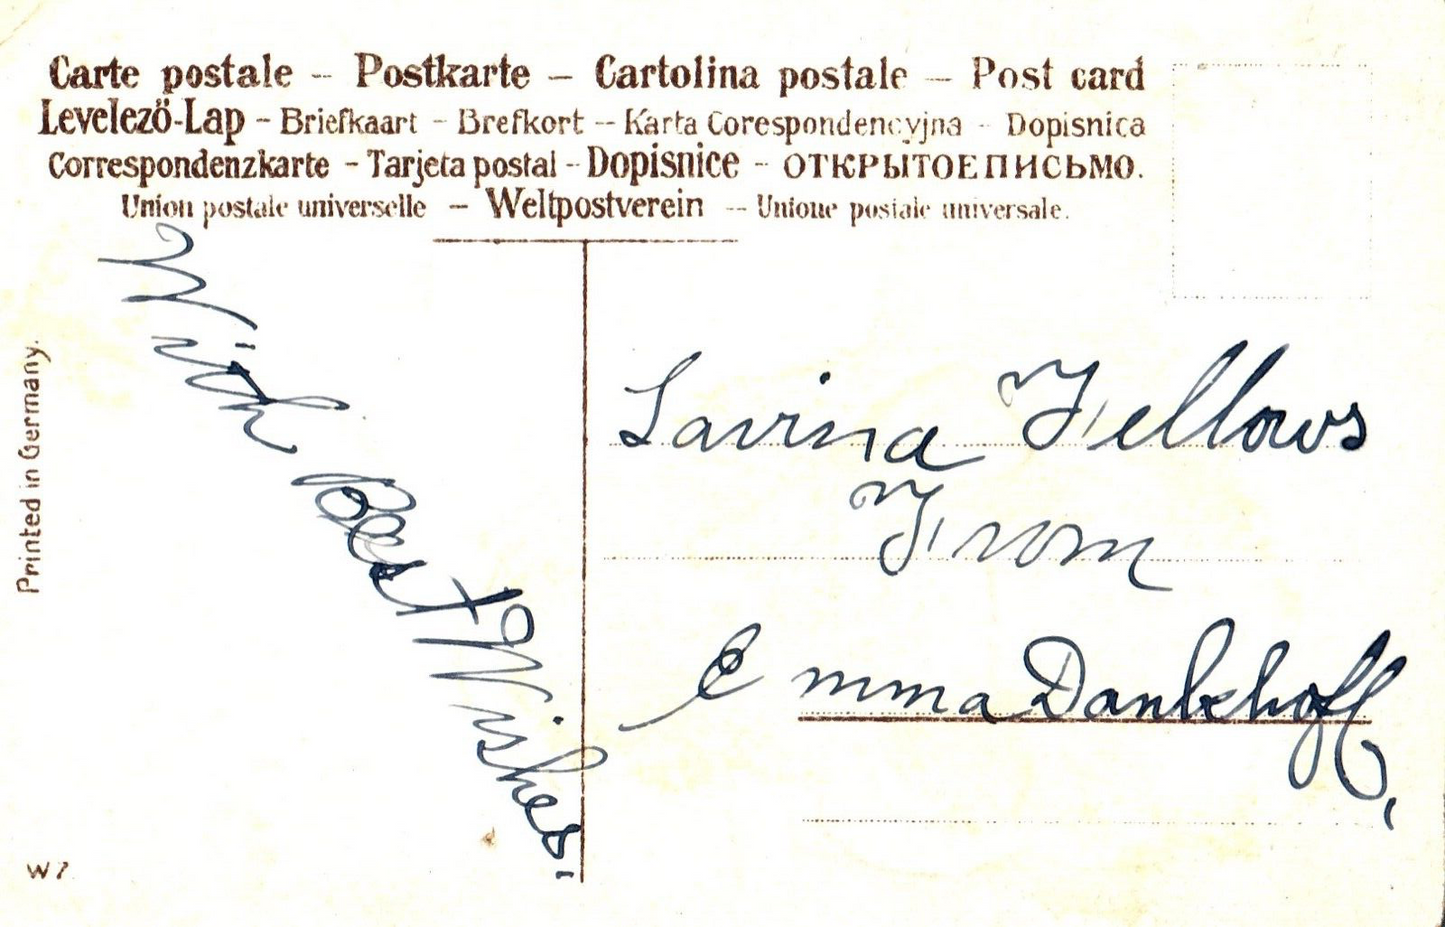 Carte postale – Postkarte – Cartolina postale – Post card
Levelezö-Lap – Briefkaart – Brefkort – Karta Corespondencyjna – Dopisnica
Correspondenzkarte – Tarjeta postal – Dopisnice – ОТКРЫТОЕ ПИСЬМО.
Union postale universelle – Weltpostverein – Unione postale universale.
Printed in Germany.
With Best Wishes.
Lavina Fellows
From
Emma Dankhoff,
W 7